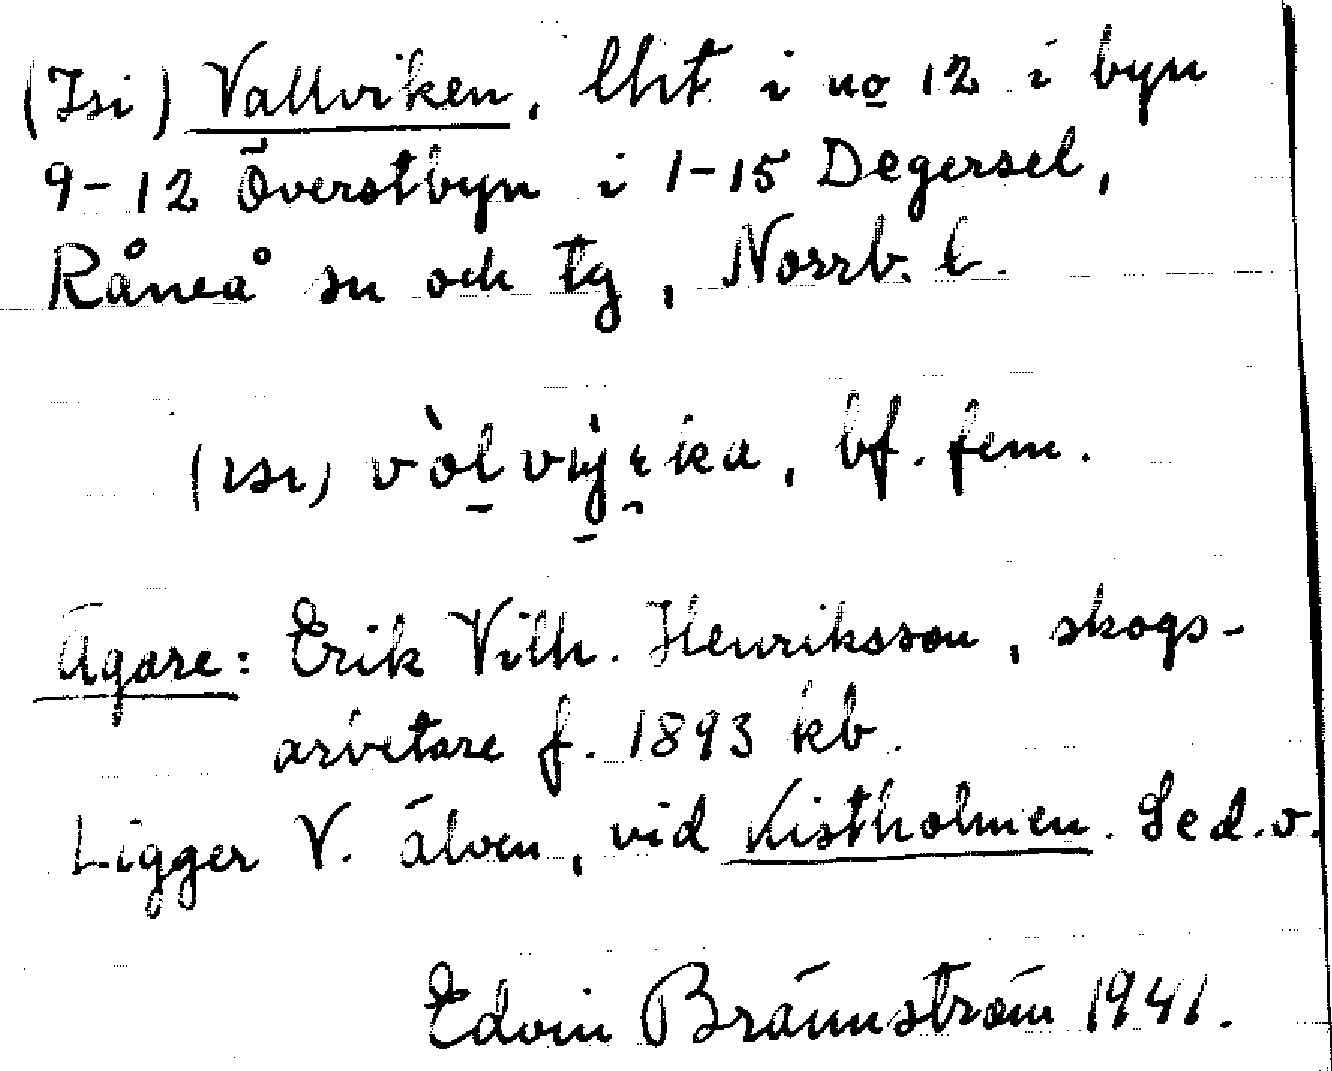 (Isi) Vallviken, lht i no 12 i byn
9-12 Överstbyn i 1-15 Degersel,
Råneå sn och tg, Norrb. l.
(ısı) bf. fem.
Ägare: Erik Vilh. Henriksson, skogs-
arvetare f. 1893 kb.
Ligger V. älven, vid Kistholmen. Se d.o.
Edvin Brännström 1941.